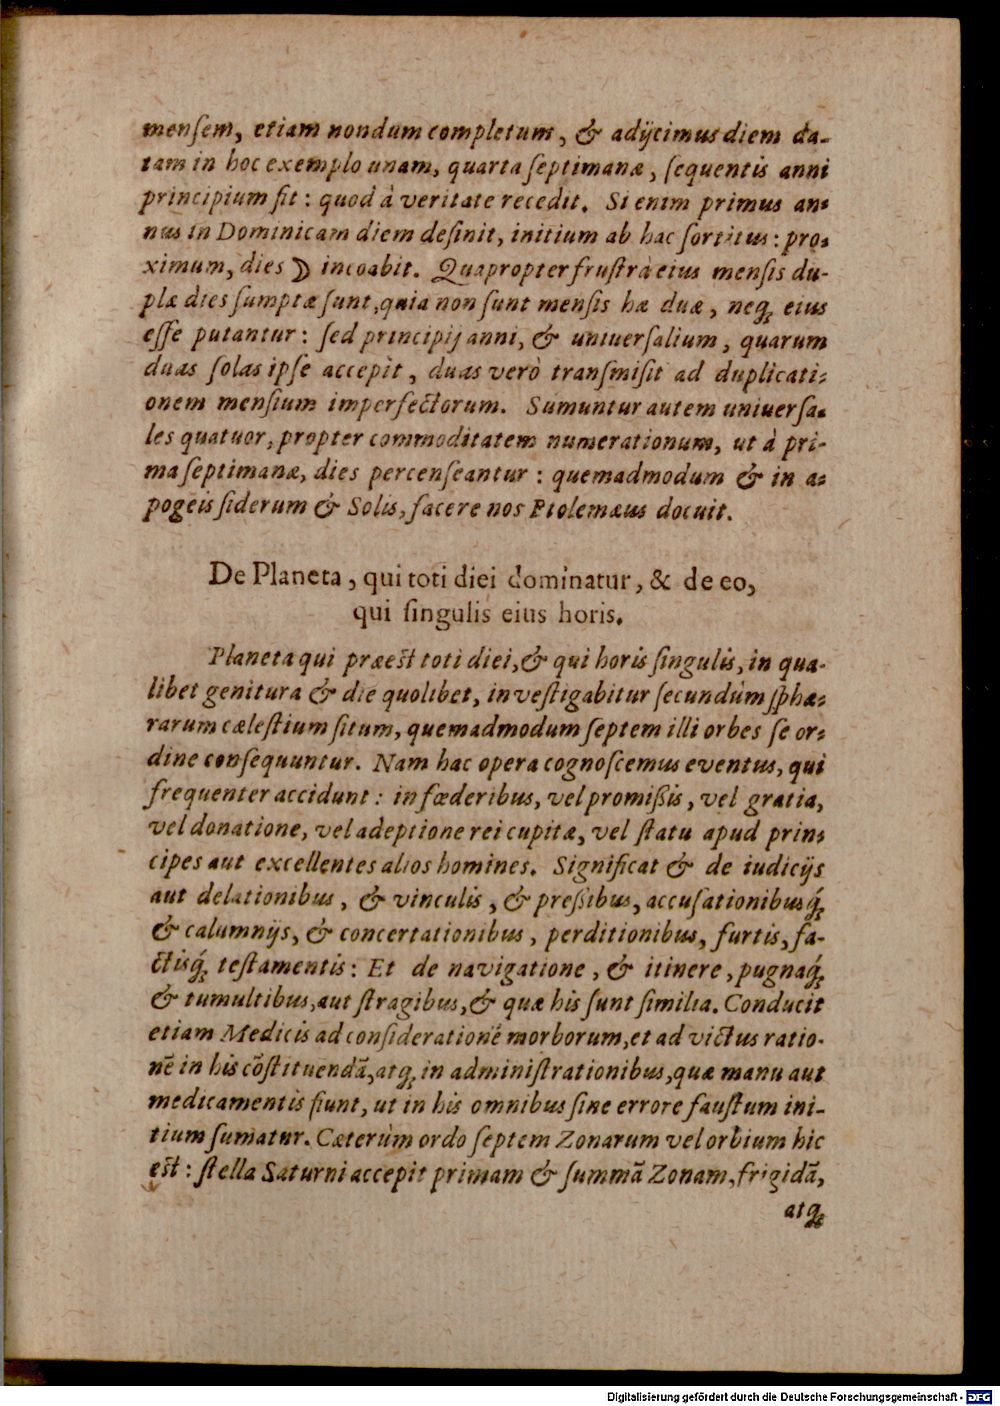 menſem, etiam nondum completum, & adijcimus diem da-
tam in hoc exemplo unam, quarta ſeptimanæ, ſequentis anni
principium fit: quod à veritate recedit. Si enim primus an-
nus in Dominicam diem deſinit, initium ab hac ſortitus: pro-
ximum, dies ☽ incoabit. Quapropter fruſtrà eius menſis du-
plæ dies ſumptæ ſunt, quia non ſunt menſis hæ duæ, neqꝫ eius
eſſe putantur: ſed principij anni, & uniuerſalium, quarum
duas ſolas ipſe accepit, duas verò tranſmiſit ad duplicati-
onem menſium imperfectorum. Sumuntur autem uniuerſa-
les quatuor, propter commoditatem numerationum, ut à pri-
ma ſeptimanæ, dies percenſeantur: quemadmodum & in a-
pogeis ſiderum & Solis, facere nos Ptolemæus docuit.
De Planeta, qui toti diei dominatur, & de eo,
qui ſingulis eius horis.
Planeta qui præeſt toti diei, & qui horis ſingulis, in qua-
libet genitura & die quolibet, inveſtigabitur ſecundùm ſphæ-
rarum cæleſtium ſitum, quemadmodum ſeptem illi orbes ſe or-
dine conſequuntur. Nam hac opera cognoſcemus eventus, qui
frequenter accidunt: in fœderibus, vel promißis, vel gratia,
vel donatione, vel adeptione rei cupitæ, vel ſtatu apud prin-
cipes aut excellentes alios homines. Significat & de iudicijs
aut delationibus, & vinculis, & preßibus, accuſationibusq́ꝫ
& calumnijs, & concertationibus, perditionibus, furtis, fa-
ctisq́ꝫ teſtamentis: Et de navigatione, & itinere, pugnaq́ꝫ
& tumultibus, aut ſtragibus, & quæ his ſunt ſimilia. Conducit
etiam Medicis ad conſideratione᷑ morborum, et ad victus ratio-
nē in his cōſtituendā, atqꝫ in adminiſtrationibus, quæ manu aut
medicamentis fiunt, ut in his omnibus ſine errore fauſtum ini-
tium ſumatur. Cæterùm ordo ſeptem Zonarum vel orbium hic
eſt: ſtella Saturni accepit primam & ſummā Zonam, frigidā,
atqꝫ
Digitalisierung gefördert durch die Deutsche Forschungsgemeinschaft - DFG